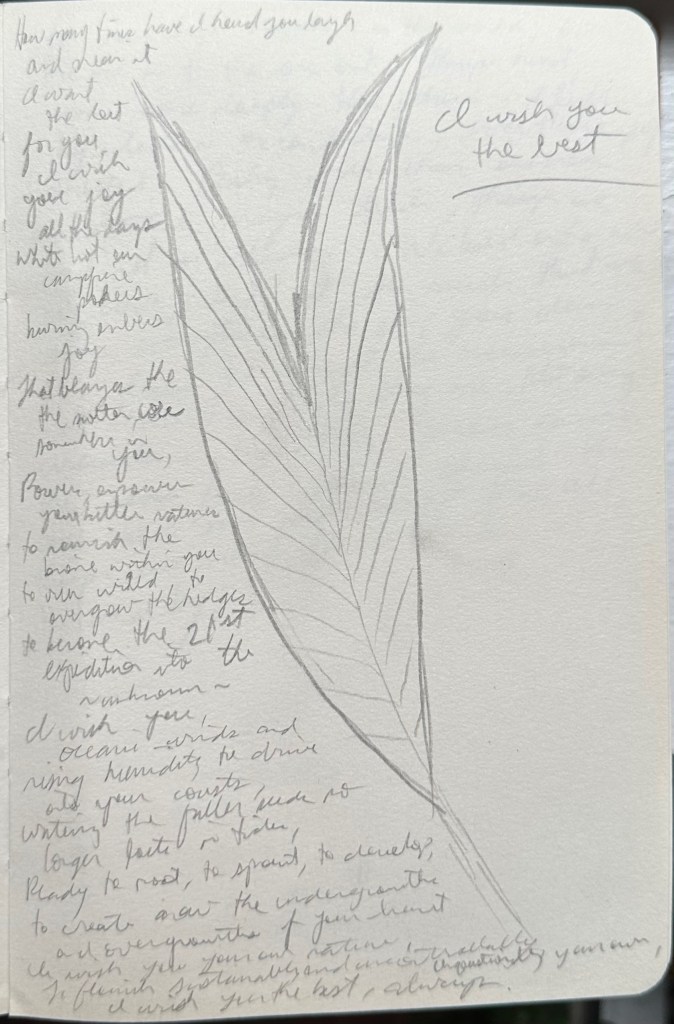 How many times have I heard you laugh
and mean it
I want
the best
for you
I wish
you joy
all the days
white hot
campfire
burning embers
Joy
That the
the matter
somewhere in
you,
Power, empower
your better natures
to nourish the
within you
to run wild to
overgrow the hedges
to become the 21st
expedition into the
~unknown~
I wish you,
oceanic winds and
rising humidity to drive
into your coasts
watering the seeds no
longer lost in tides,
Ready to root, to sprout, to develop,
to create anew the undergrowths
and overgrowths of your heart
I wish you your own nature,
To flourish sustainably and uncontrollably
unquestionably your own,
I wish you the best, always.
I wish you
the best